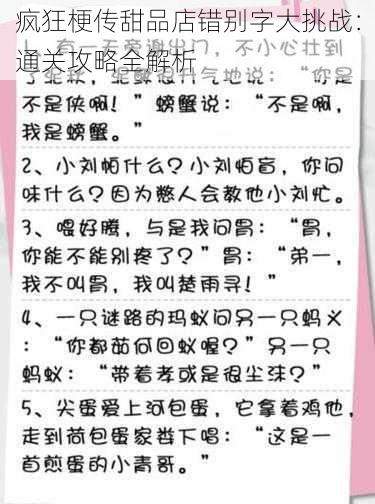 疯狂梗传甜品店错别字大挑战：
通关攻略全解析
有一天旁谢出门，不小心壮到
气地说：“你是
不是侠啊！”螃蟹说：“不是啊，
我是螃蟹。”
2、小刘帕什么？小刘怕盲，你问
味什么？因为憋人会教他小刘忙。
3、喂好腾，与是我问胃：“胃，
你能不能别疼了？”胃：“弟一，
我不叫胃，我叫楚雨寻！”
4、一只谜路的玛蚁问另一只蚂义
：“你都茹何回蚁喔？”另一只
蚂蚁：“带着孝或是很尘沫？”
5、尖蛋爱上河包蛋，它拿着鸡他，
走到荷包蛋家娄下唱：“这是一
首煎蛋的小青哥。”